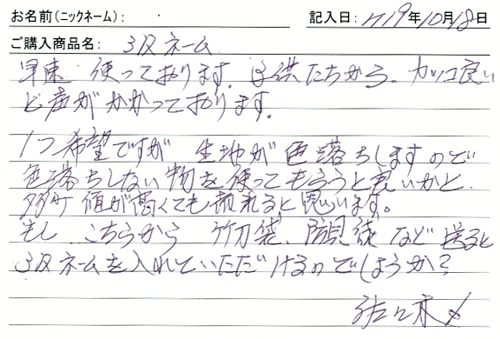 お名前(ニックネーム): 記入日: H19年10月18日
ご購入商品名: 3Dネーム
早速 使っております。子供たちから、カッコ良い
と声がかかっております。
1つ希望ですが 生地が色落ちしますので
色落ちしない物を使ってもらうと良いかと、
多少 値が高くても売れると思います。
もし こちらから 竹刀袋、防具袋 など 送ると
3Dネームを入れていただけるのでしょうか?
佐々木